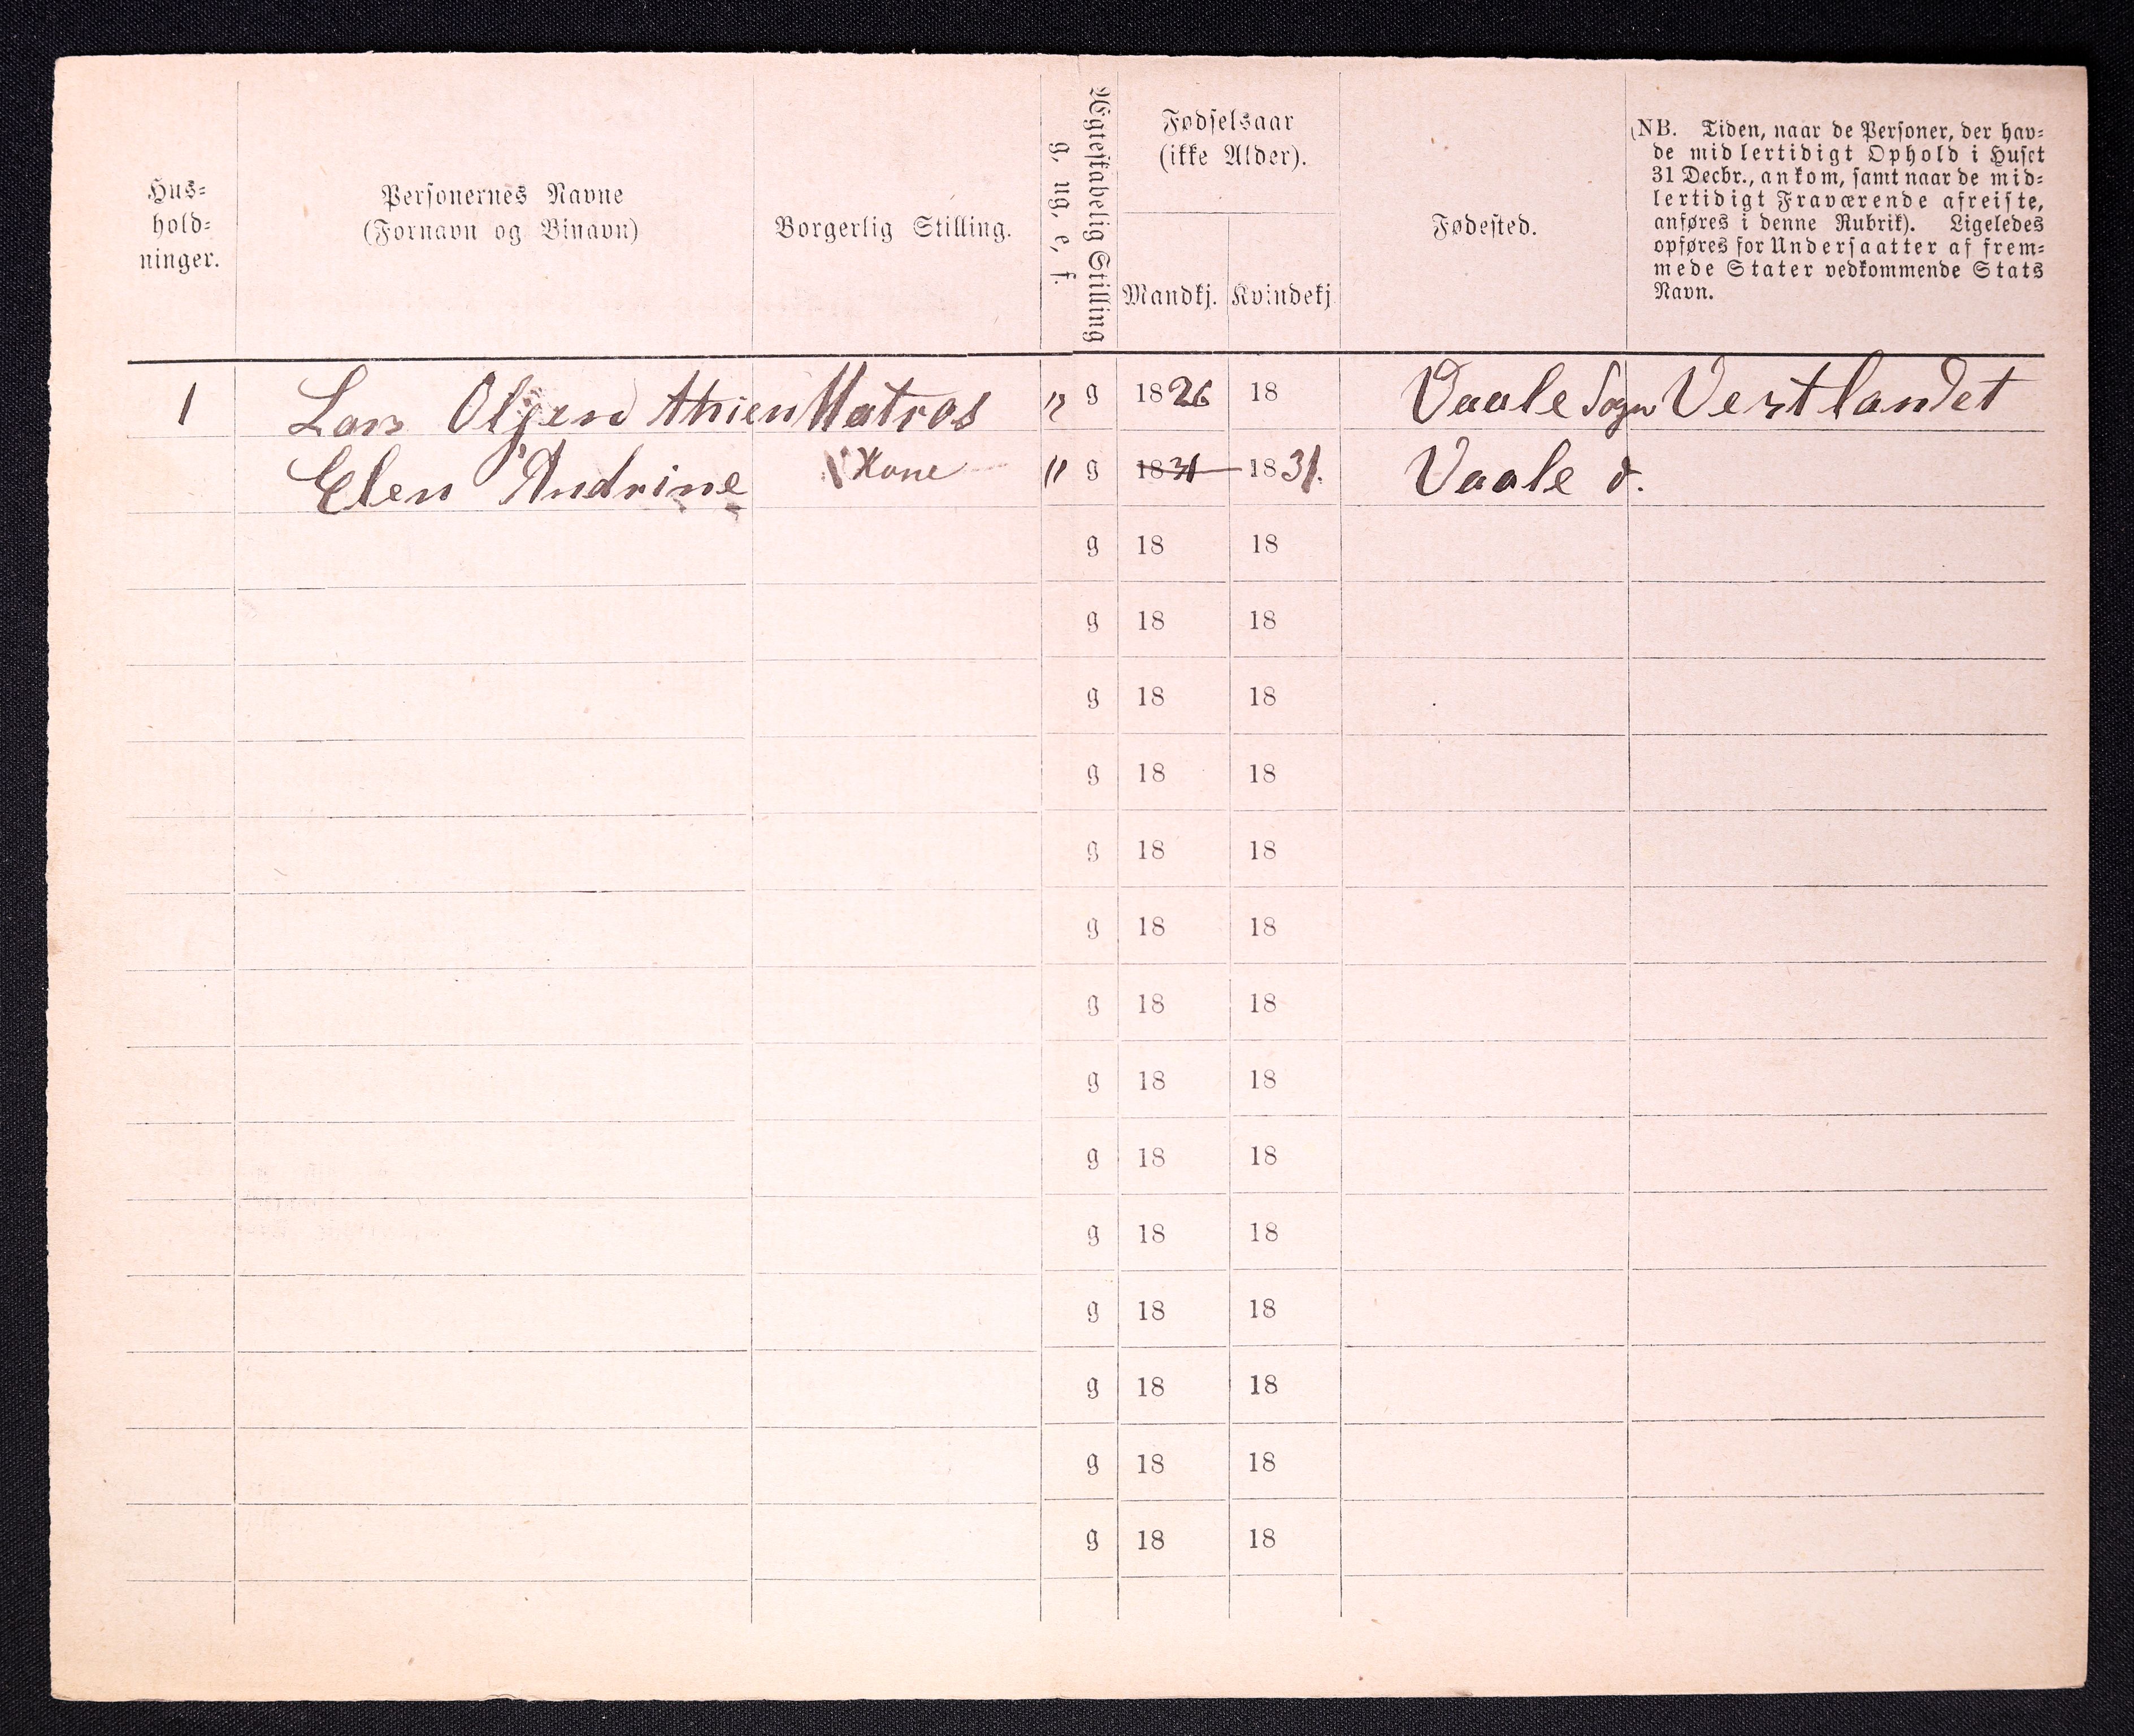 Hus=
hold=
ninger.
Personernes Navne
(Fornavn og Binavn)
Borgerlig Stilling.
Ægteskabelig Stilling
g, ug, e, f.
Fødselsaar
(ikke Alder).
Mandkj. Kvindekj
Fødested.
(NB. Tiden, naar de Personer, der hav=
de midlertidigt Ophold i Huset
31 Decbr., ankom, samt naar de mid=
lertidigt Fraværende afreiste,
anføres i denne Rubrik). Ligeledes
opføres for Undersaatter af frem=
mede Stater vedkommende Stats
Navn.
1 Lars Olsen Matros g 1826 18 Vaale Sogn Vestlandet
Elen Andrine Kone g 1831 1831. Vaale d.
g 18 18
g 18 18
g 18 18
g 18 18
g 18 18
g 18 18
g 18 18
g 18 18
g 18 18
g 18 18
g 18 18
g 18 18
g 18 18
g 18 18